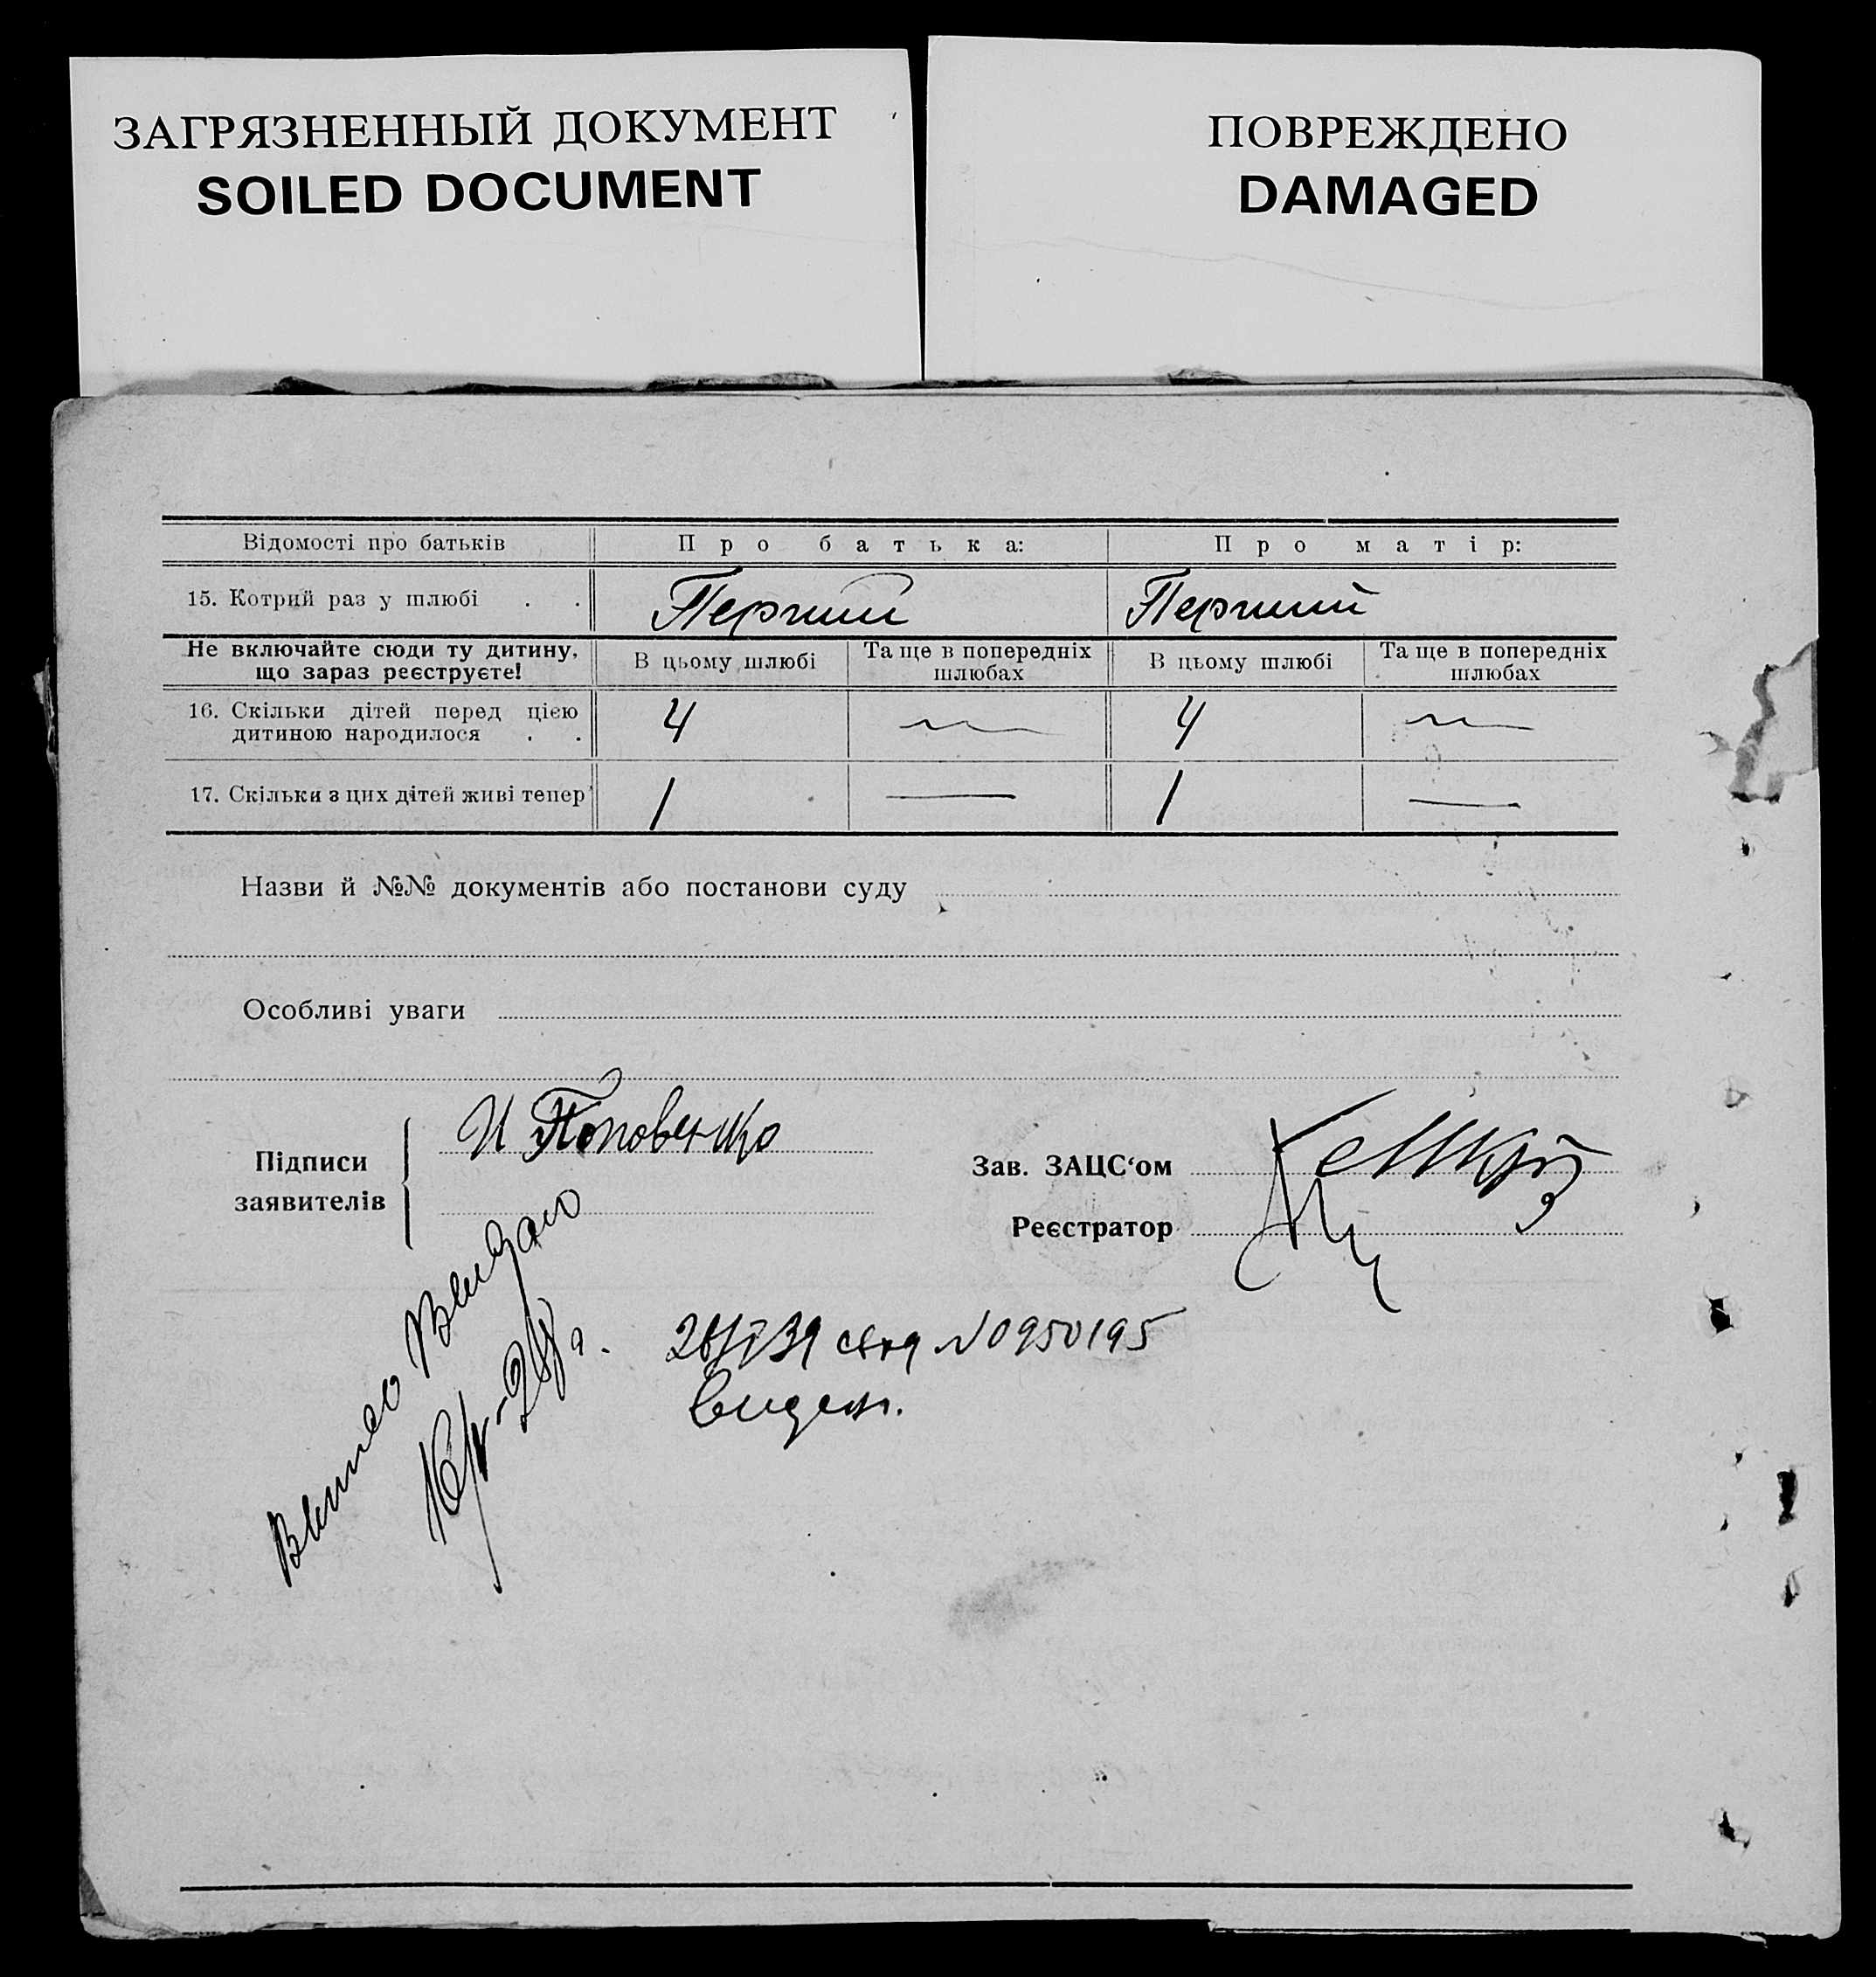 ЗАГРЯЗНЕННЫЙ ДОКУМЕНТ
SOILED DOCUMENT
ПОВРЕЖДЕНО
DAMAGED
Відомості про батьків Про батька: Про матір:
15. Котрий раз у шлюбі . . Перший Перший
Не включайте сюди ту дитину, що зараз реєструєте! В цьому шлюбі Та ще в попередніх шлюбах В цьому шлюбі Та ще в попередніх шлюбах
16. Скільки дітей перед цією
дитиною народилося . . 4 — 4 —
17. Скільки з цих дітей живі тепер 1 — 1 —
Назви й №№ документів або постанови суду
Особливі уваги
Підписи
заявителів
И Поповенко
Зав. ЗАЦС‘ом
Реєстратор
Видано
N 0950195